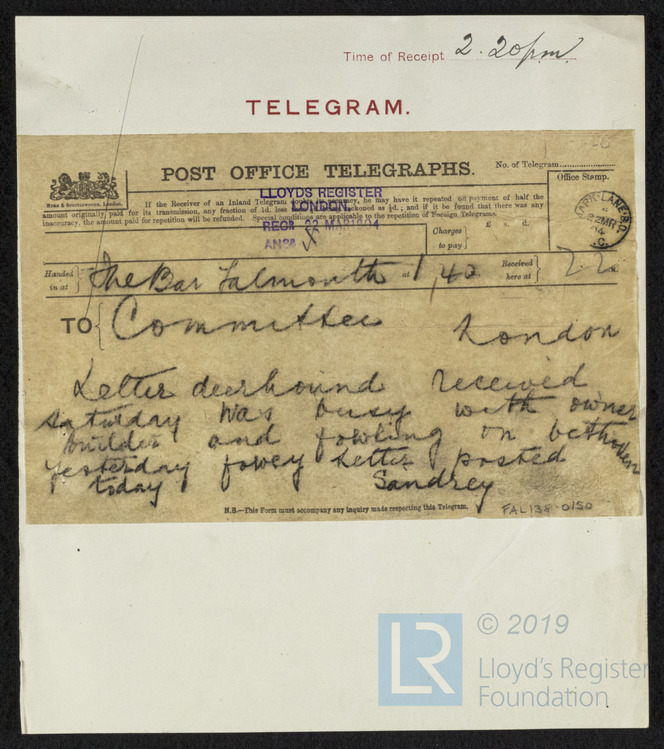 Time of Receipt 2.20pm
TELEGRAM.
POST OFFICE TELEGRAPHS.
No. of Telegram
If the Receiver of an Inland Telegram doubts its accuracy, he may have it repeated on payment of half the
amount originally paid for its transmission, any fraction of 1d. less than ½d. being reckoned as ½d.; and if it be found that there was any
inaccuracy, the amount paid for repetition will be refunded. Special conditions are applicable to the repetition of Foreign Telegrams.
Office Stamp.
LLOYDS REGISTER
LONDON.
REC 22 MAR 1904
ANSd
MARK-LANE-B.O.
22 MR
04
Charges to pay £ s. d.
Handed in at The Bar Falmouth at 1,40 Received here at 2 2
TO Committee London
Letter deerhound received
Saturday was busy with owner
builder and fowling on bethoden
yesterday fowey letter posted
today Sandrey
N.B.—This Form must accompany any inquiry made respecting this Telegram.
FAL138-0150
LR © 2019
Lloyd's Register
Foundation